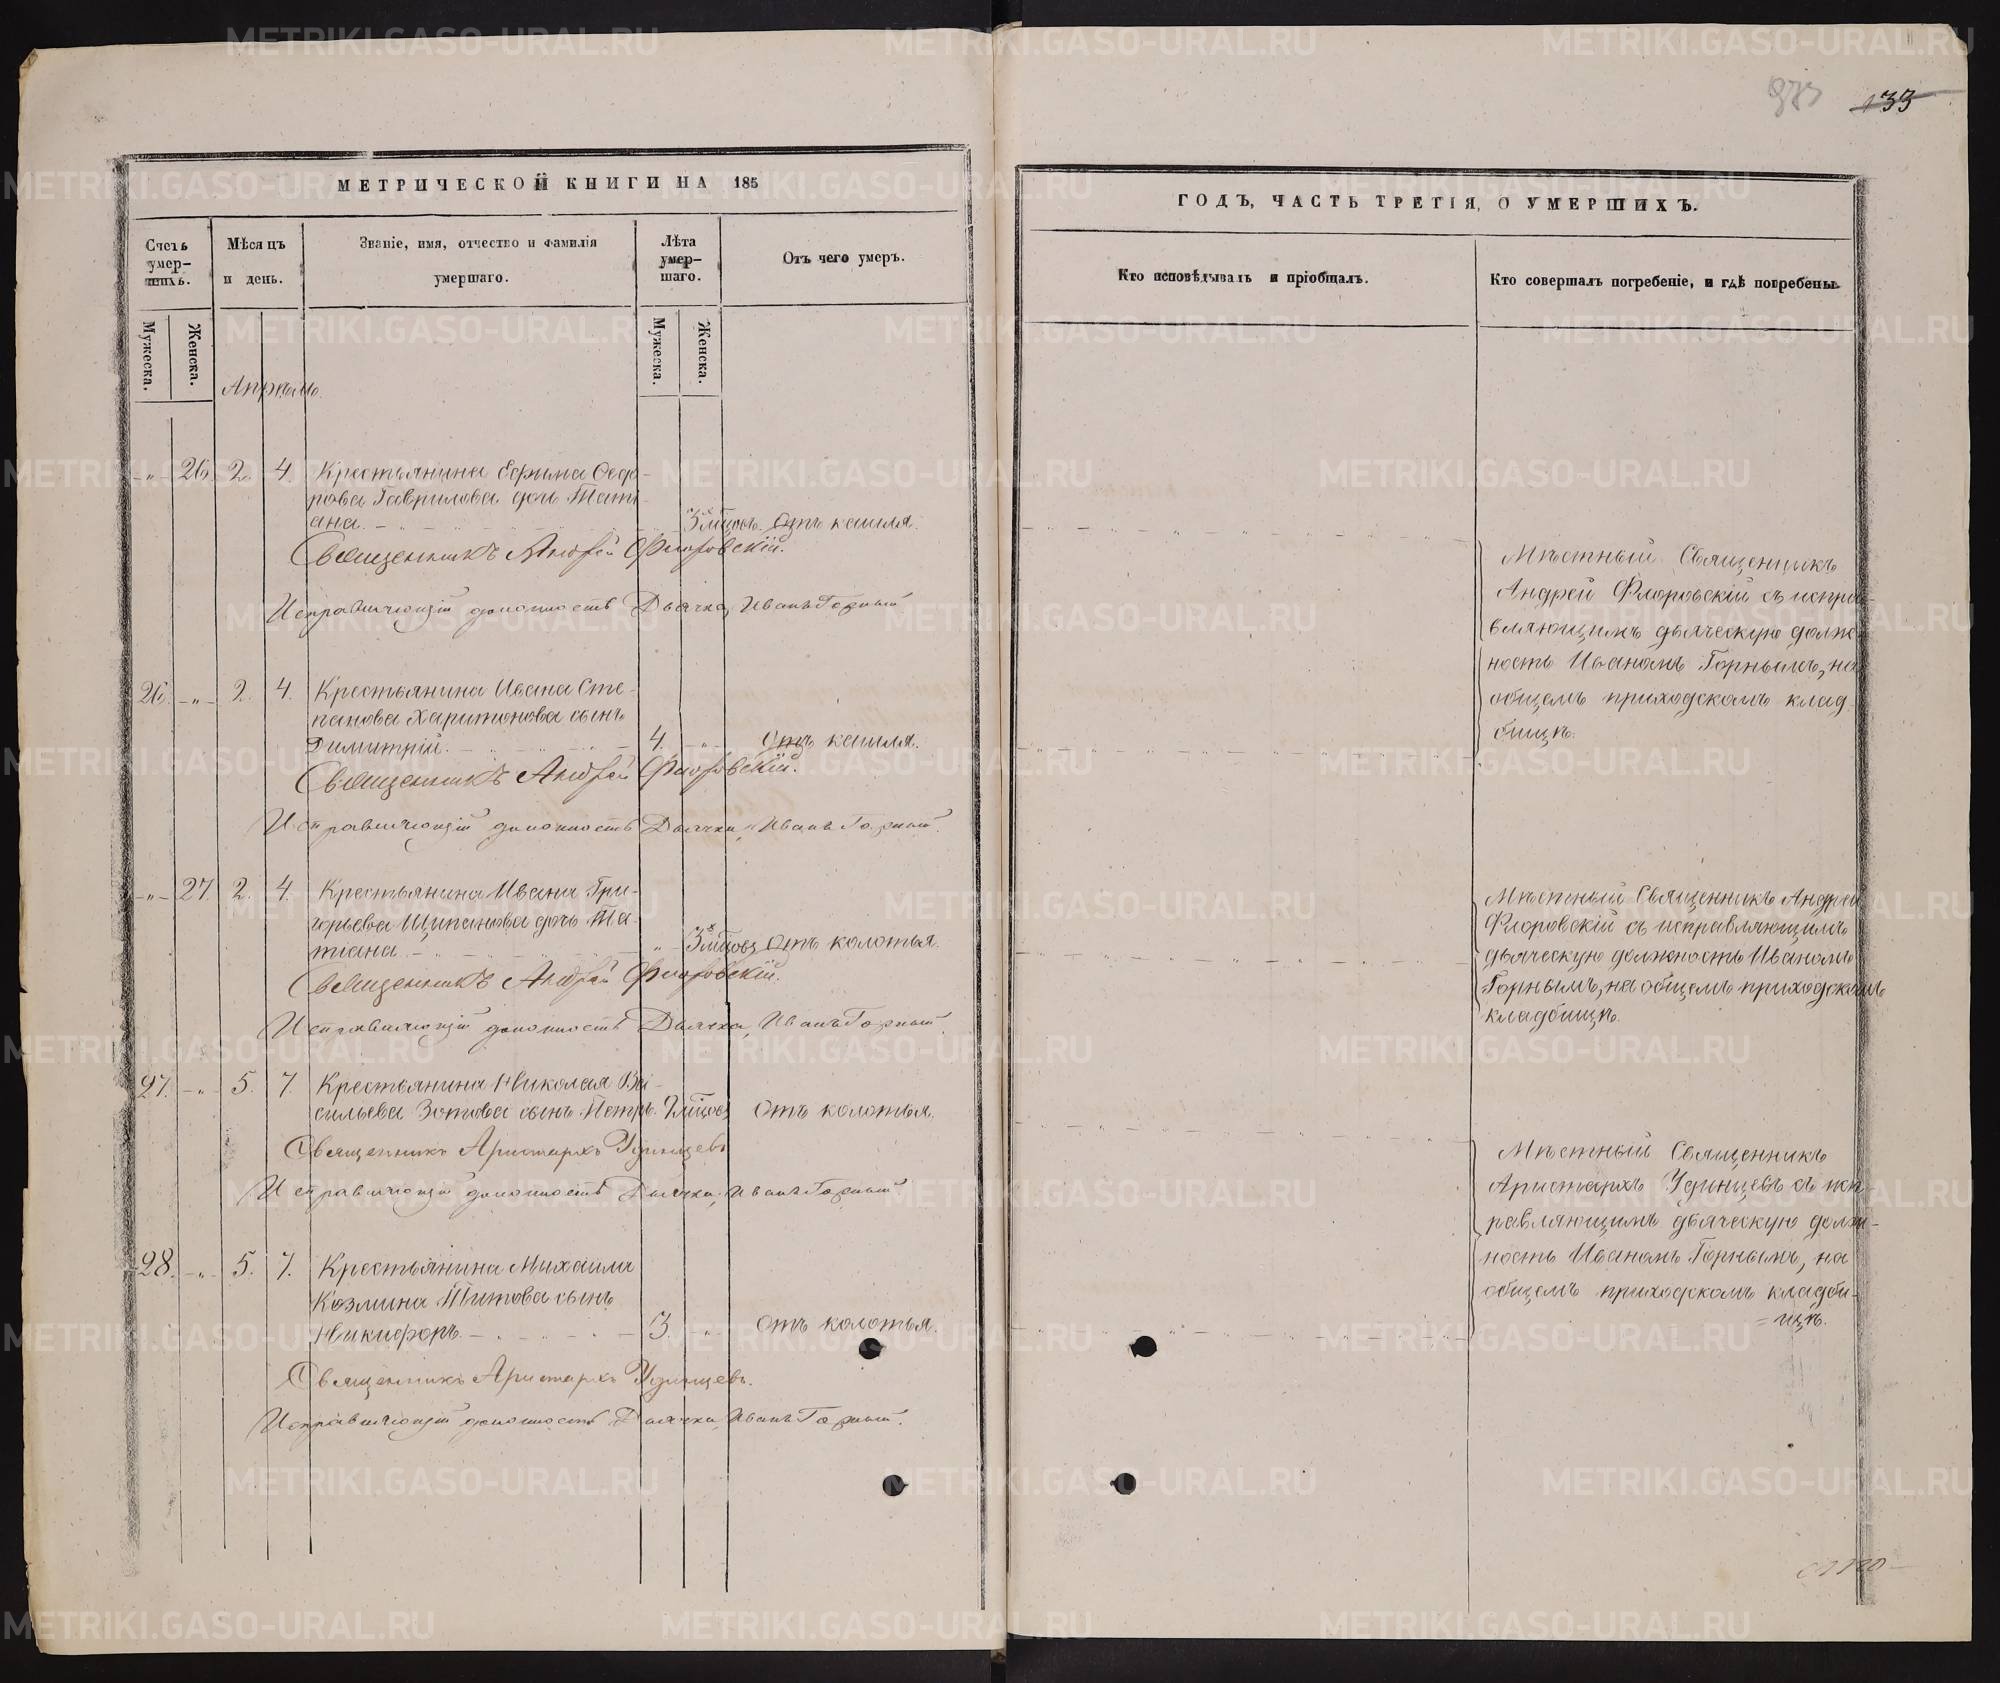 133
МЕТРИЧЕСКОЙ КНИГИ НА 185
Счетъ умер-шихъ.
Мѣсяцъ и день.
Званіе, имя, отчество и фамилія умершаго.
Лѣта умер-шаго.
Отъ чего умеръ.
Мужеска.
Женска.
Мужеска.
Женска.
Апрѣль.
26. 2. 4. Крестьянина Ефима Ѳедо-
рова Гаврилова дочь Тати-
ана. 3 мѣсяц. Отъ кашля.
Священникъ Андрей Флоровскій.
Исправляющій должность Дьячка, Иванъ Горный
26. 2. 4. Крестьянина Ивана Сте-
панова Харитонова сынъ
Димитрій. 4. Отъ кашля.
Священникъ Андрей Флоровскій.
Исправляющій должность Дьячка, Иванъ Горный.
27. 2. 4. Крестьянина Ивана Гри-
горьева Щипанова дочь Та-
тіана. 3 мѣсяц. Отъ колотья.
Священникъ Андрей Флоровскій.
Исправляющій должность Дьячка, Иванъ Горный.
27. 5. 7. Крестьянина Николая Ва-
сильева Зотова сынъ Петръ. Отъ колотья.
Священникъ Аристархъ Удинцевъ
Исправляющій должность Дьячка, Иванъ Горный
28. 5. 7. Крестьянина Михаила
Козмина Титова сынъ
Никифоръ. 3. Отъ колотья.
Священникъ Аристархъ Удинцевъ.
Исправляющій должность Дьячка, Иванъ Горный.
ГОДЪ, ЧАСТЬ ТРЕТІЯ, О УМЕРШИХЪ.
Кто исповѣдывалъ и пріобщалъ.
Кто совершалъ погребеніе, и гдѣ погребены.
Мѣстный Священникъ
Андрей Флоровскій съ испра-
вляющимъ дьяческую долж-
ность Иваномъ Горнымъ, на
общемъ приходскомъ клад-
бищѣ.
Мѣстный Священникъ Андрей
Флоровскій съ исправляющимъ
дьяческую должность Иваномъ
Горнымъ, на общемъ приходскомъ
кладбищѣ.
Мѣстный Священникъ
Аристархъ Удинцевъ съ исп-
равляющимъ дьяческую долж-
ность Иваномъ Горнымъ, на
общемъ приходскомъ кладби-
=щѣ.
METRIKI.GASO-URAL.RU